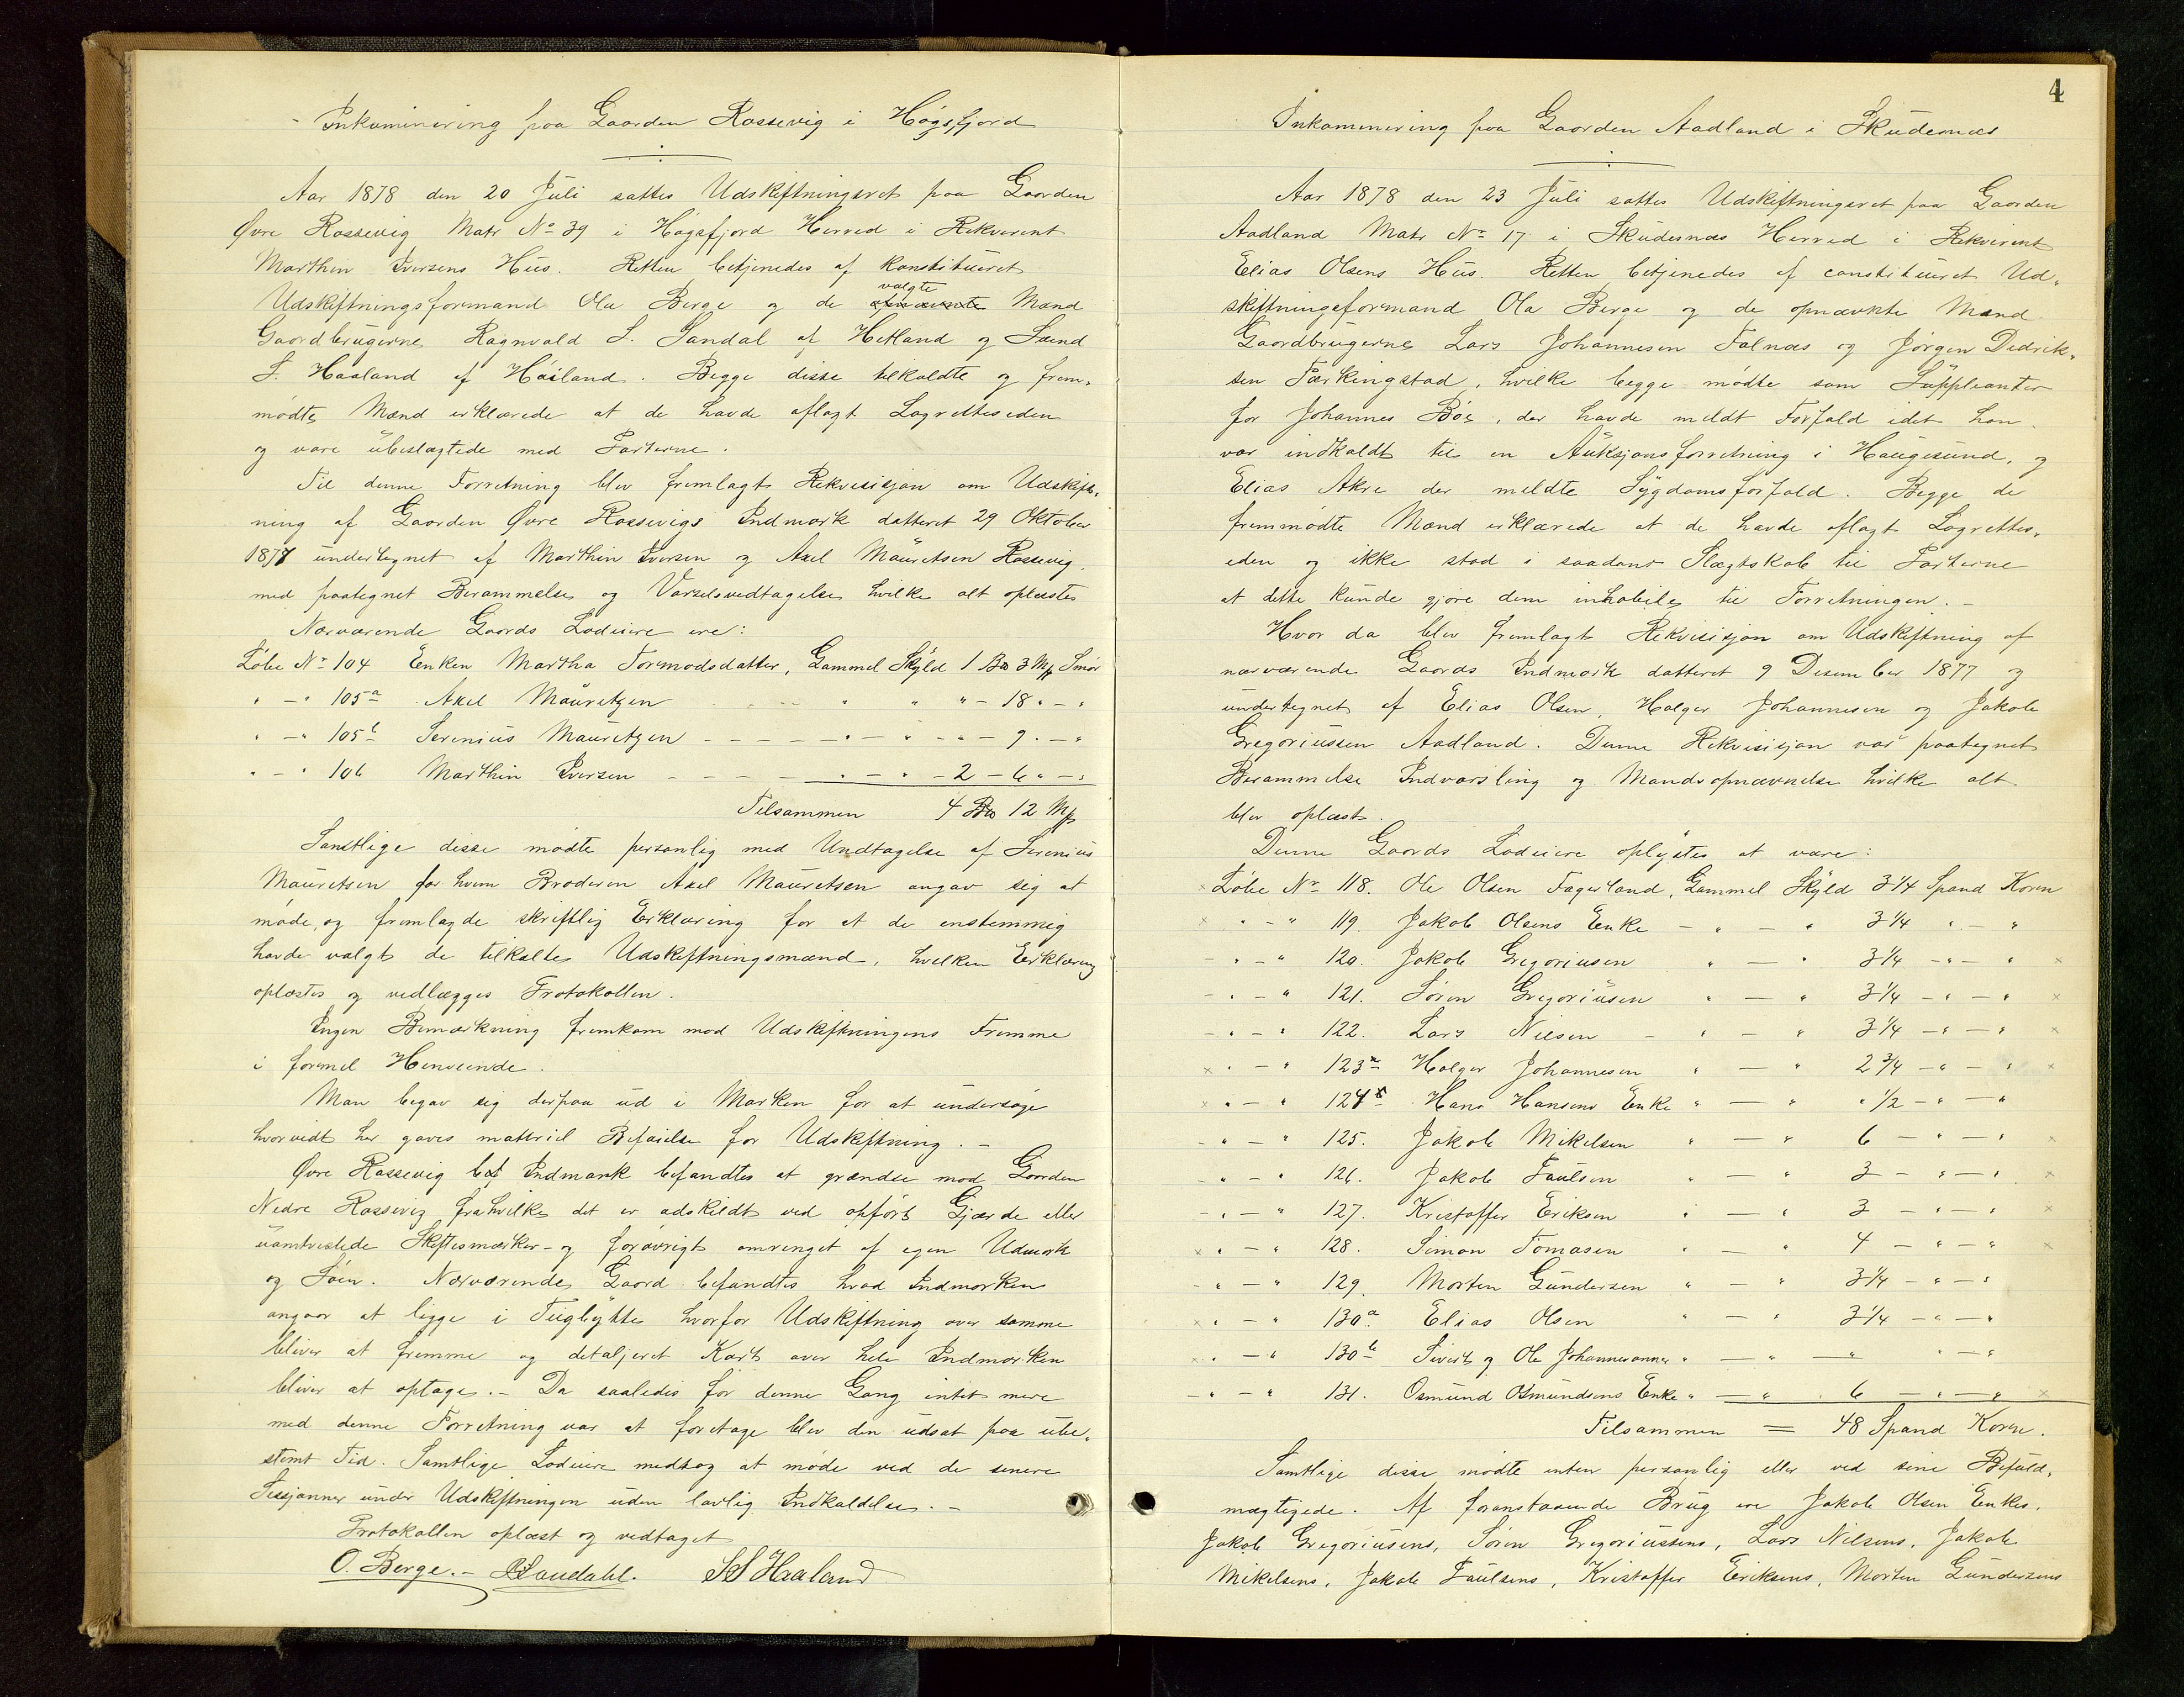 Inkaminering paa Gaarden Rossevig i Høgsfjord
Aar 1878 den 20 Juli sattes Udskiftningsret paa Gaarden
Øvre Rossevig Matr No 39 i Høgsfjord Herred i Rekvirent
Marthin Iversens Hus. Retten betjenedes af konstitueret
valgte
Udskiftningsformand Ola Berge og de opnævnte Mænd
Gaardbrugerne Ragnvald S. Sandal af Hetland og Svend
S. Haaland af Høiland. Begge disse tilkaldte og frem-
mødte Mænd erklærede at de havde aflagt Lagretteseden
og vare ubeslægtede med Parterne.
Til denne Forretning blev fremlagt Rekvisisjon om Udskift-
ning af Gaarden Øvre Rossevigs Indmark datteret 29 Oktober
1877 undertegnet af Marthin Iversen og Axel Mauretsen Rossevig,
med paategnet Berammelse og Varselsvedtagelse hvilke alt oplæstes
Nærværende Gaards Lodeiere ere:
Löbe No 104 Enken Martha Tormodsdatter, Gammel Skyld 1 Bo 3 Mp Smör
" - " 105a Axel Mauretzen " " " - 18 " - "
" - " 105b Serenius Mauretzen - - - " - " - " - 9 " - "
" - " 106 Marthin Iversen - - - - " - " - 2 - 6 " - "
Tilsammen 4 Bo 12 Mp
Samtlige disse mødte personlig med Undtagelse af Serenius
Mauretsen for hvem Broderen Axel Mauretsen angav sig at
møde, og fremlagde skriftlig Erklæring for at de enstemmig
havde valgt de tilkalte Udskiftningsmænd, hvilken Erklæring
oplæstes og vedlægges Protokollen.
Ingen Bemærkning fremkom mod Udskiftningens Fremme
i formel Henseende.
Man begav sig derpaa ud i Marken for at undersøge
hvorvidt her gaves mattriel Beføielse for Udskiftning. -
Øvre Rossevig Indmark befandtes at grændse mod Gaarden
Nedre Rossevig frahvilke det er adskildt ved opført Gjærde eller
uomtvistede Skiftesmærker - og forøvrigt omringet af egen Udmark
og Søen. Nærværende Gaard befandtes hvad Indmarken
angaar at ligge i Teigbytte hvorfor Udskiftning over samme
bliver at fremme og detaljeret Kart over hele Indmarken
bliver at optage. - Da saaledes for denne Gang intet mere
med denne Forretning var at foretage blev den udsat paa ube-
stemt Tid. Samtlige Lodeiere medtog at møde ved de senere
Sessjonner under Udskiftningen uden lovlig Indkaldelse. -
Protokollen oplæst og vedtaget
O. Berge. - RSandahl. SS Haaland
4
Inkaminering paa Gaarden Aadland i Skudesnæs
Aar 1878 den 23 Juli sattes Udskiftningsret paa Gaarden
Aadland Matr No 17 i Skudesnæs Herred i Rekvirent
Elias Olsens Hus. Retten betjenedes af constitueret Ud-
skiftningsformand Ola Berge og de opnævnte Mænd
Gaardbrugerne Lars Johannesen Falnæs og Jørgen Dedrik-
sen Færkingstad, hvilke begge mødte som Suppleanter
for Johannes Böe, der havde meldt Forfald idet han
var indkaldt til en Auksjonsforretning i Haugesund, og
Elias Akre der meldte Sygdomsforfald. Begge de
fremmødte Mænd erklærede at de havde aflagt Lagrettes-
eden og ikke stod i saadant Slægtskab til Parterne
at dette kunde gjøre dem inhabile til Forretningen. -
Hvor da blev fremlagt Rekvisisjon om Udskiftning af
nærværende Gaards Indmark datteret 9 Desember 1877 og
undertegnet af Elias Olsen, Holger Johannesen og Jakob
Gregoriussen Aadland. Denne Rekvisisjon var paategnet
Berammelse Indvarsling og Mandsopnævnelse hvilke alt
blev oplæst.
Denne Gaards Lodeiere oplystes at være:
x Löbe No 118. Ole Olsen Fagerland, Gammel Skyld 3 1/4 Spand Korn
x " - " 119. Jakob Olsens Enke - " - " 3 1/4 " - "
- " - " 120. Jakob Gregoriusen " - " 3 1/4 - " - " x
- " - " 121. Sören Gregoriusen " - " 3 1/4 - " - " x
- " - " 122. Lars Nilsen - " - " 3 1/4 - " - " x
x " - " 123a Holger Johannesen " - " 2 3/4 - " - " x
x " - " 124 Hans Hansens Enke " - " " 1/2 - " - "
- " - " 125. Jakob Mikelsen " - " 6 - " - " x
- " - " 126. Jakob Paulsen " - " 3 - " - " x
- " - " 127. Kristoffer Eriksen " - " 3 - " - " x
x " - " 128. Simon Tomasen " - " 4 - " - " x
- " - " 129. Morten Gundersen " - " 3 1/4 - " - "
x " - " 130a. Elias Olsen " - " 3 1/4 - " - "
x " - " 130b Sivert og Ole Johannesønner " - " - " " - "
- " - " 131. Osmund Osmundsens Enke " - " 6 - " - " x
Tilsammen = 48 Spand Korn.
Samtlige disse mødte enten personlig eller ved sine Befuld-
mægtigede. Af foranstaaende Brug ere Jakob Olsen Enkes,
Jakob Gregoriusens, Sören Gregoriussens, Lars Nilsens, Jakob
Mikelsens, Jakob Paulsens, Kristoffer Eriksens, Morten Gundersens